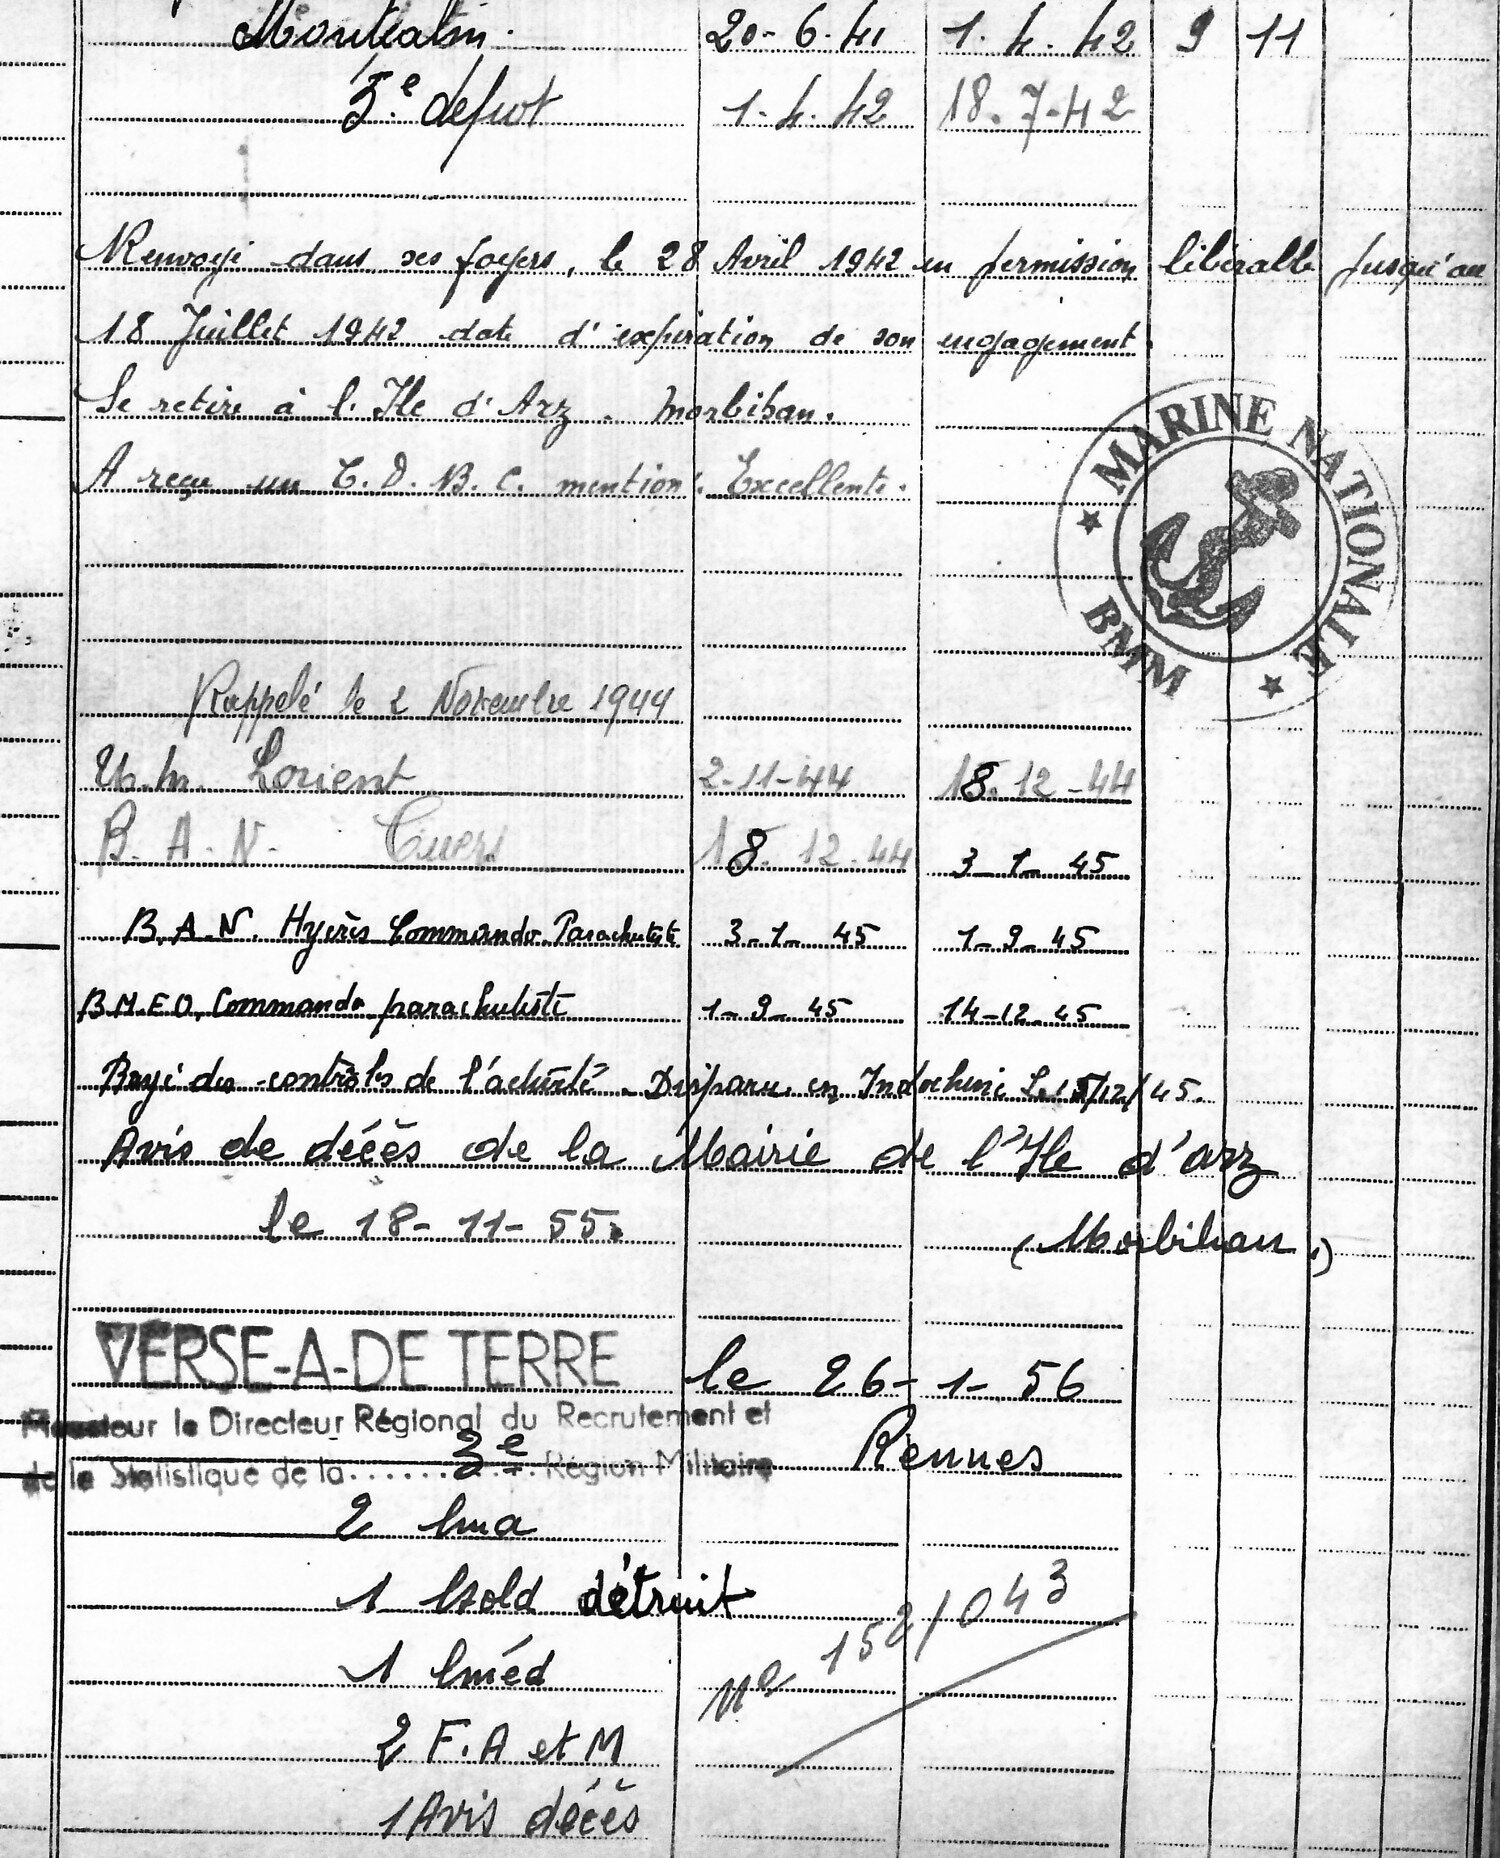 Montcalm. 20-6-41 1.4.42 9 11
5e dépot 1.4.42 18.7-42
Renvoyé dans ses foyers, le 28 Avril 1942 en permission libérable jusqu'au
18 Juillet 1942 date d'expiration de son engagement.
Se retire à l'Ile d'Arz. Morbihan.
A reçu un C.D.B.C. mention: Excellente.
MARINE NATIONALE
BMM
Rappelé le 2 Novembre 1944
U.M. Lorient 2-11-44 18.12-44
B.A.N. Cuers 18.12.44 3-1-45
B.A.N. Hyères Commando Parachutiste 3-1-45 1-9-45
B.M.E.O. Commando parachutiste 1-9-45 14-12-45
Rayé des contrôles de l'activité - Disparu en Indochine Le 15/12/45.
Avis de décès de la Mairie de l'Ile d'arz
le 18-11-55. (Morbihan)
VERSE-A-DE TERRE le 26-1-56
Monsieur le Directeur Régional du Recrutement et
de la Statistique de la ...... 3e .... Région Militaire Rennes
2 lma
1 lsold détruit
1 lméd
No 152/043
2 F.A et M
1 Avis décès